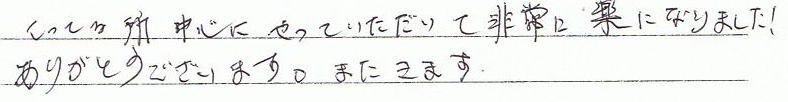 こってる所中心にやっていただいて非常に楽になりました!
ありがとうございます。またきます.